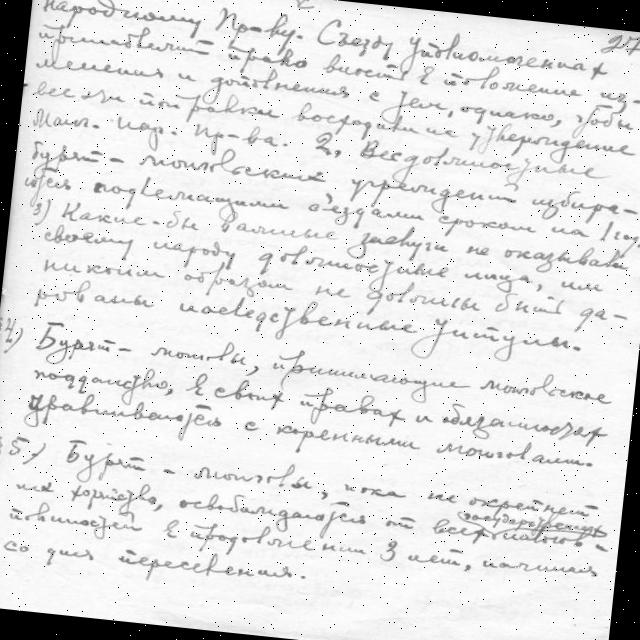 народному Пр-ву. Съезду уполномоченных
принадлежит право вносить в положение из-
менения и дополнения с тем, однако, чтобы
все эти поправки восходили на утверждение
Монг. Нар. Пр-ва. 2) Все должностные
бурят-монгольских учреждений избира-
ются подлежащими съездами сроком на 1 год
3) Какие-бы важные заслуги не оказывали
своему народу должностные лица, им
никоим образом не должны быть да-
рованы наследственные титулы.
4) Бурят-монголы, принимающие монгольское
подданство, в своих правах и обязанностях
уравниваются с коренными монголами.
5) Бурят-монголы, пока не окрепнет
их хозяйство, освобождаются от всех
повинностей в продолжении 3 лет, начиная
со дня переселения.